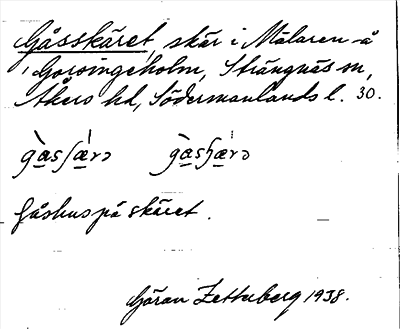 Gåsskäret, skär i Mälaren å
Gorsingeholm, Strängnäs sn,
Åkers hd, Södermanlands l. 30.
Gåshus på skäret.
Göran Zetterberg 1938.